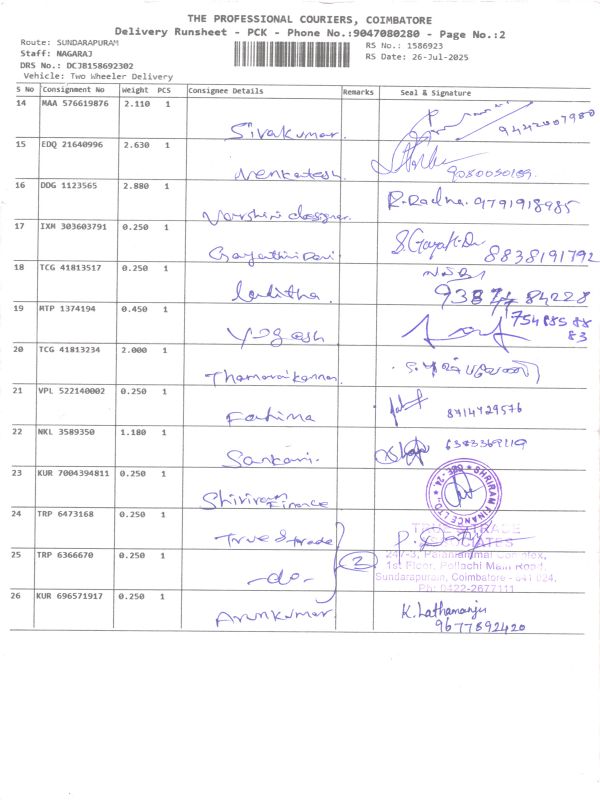 THE PROFESSIONAL COURIERS, COIMBATORE
Delivery Runsheet - PCK - Phone No.:9047080280 - Page No.:2
Route: SUNDARAPURAM
Staff: NAGARAJ
DRS No.: DCJB158692302
Vehicle: Two Wheeler Delivery
RS No.: 1586923
RS Date: 26-Jul-2025
S No Consignment No Weight PCS Consignee Details Remarks Seal & Signature
14 MAA 576619876 2.110 1 Sivakumar. 9442007980
15 EDQ 21640996 2.630 1 Venkatesh.
16 DDG 1123565 2.880 1 Varshini designer. R. Radha. 9791918985
17 IXM 303603791 0.250 1 Gayathiri Devi. S. Gayati Devi 8838191792
18 TCG 41813517 0.250 1 Lalitha. 93877 84228
19 MTP 1374194 0.450 1 Yogesh 754885 88
83
20 TCG 41813234 2.000 1 Thamaraikannan.
21 VPL 522140002 0.250 1 Fathima 8714729576
22 NKL 3589350 1.180 1 Sankari. 6383369119
23 KUR 7004394811 0.250 1 Shriram Finance SHRIRAM FINANCE LTD.
24 TRP 6473168 0.250 1 True & trade
25 TRP 6366670 0.250 1 -do- 2
247-3, Paramammal Complex,
1st Floor, Pollachi Main Road,
Sundarapuram, Coimbatore - 641 024.
Ph: 0422-2677111
26 KUR 696571917 0.250 1 Arunkumar K. Lathamanju
9677892420